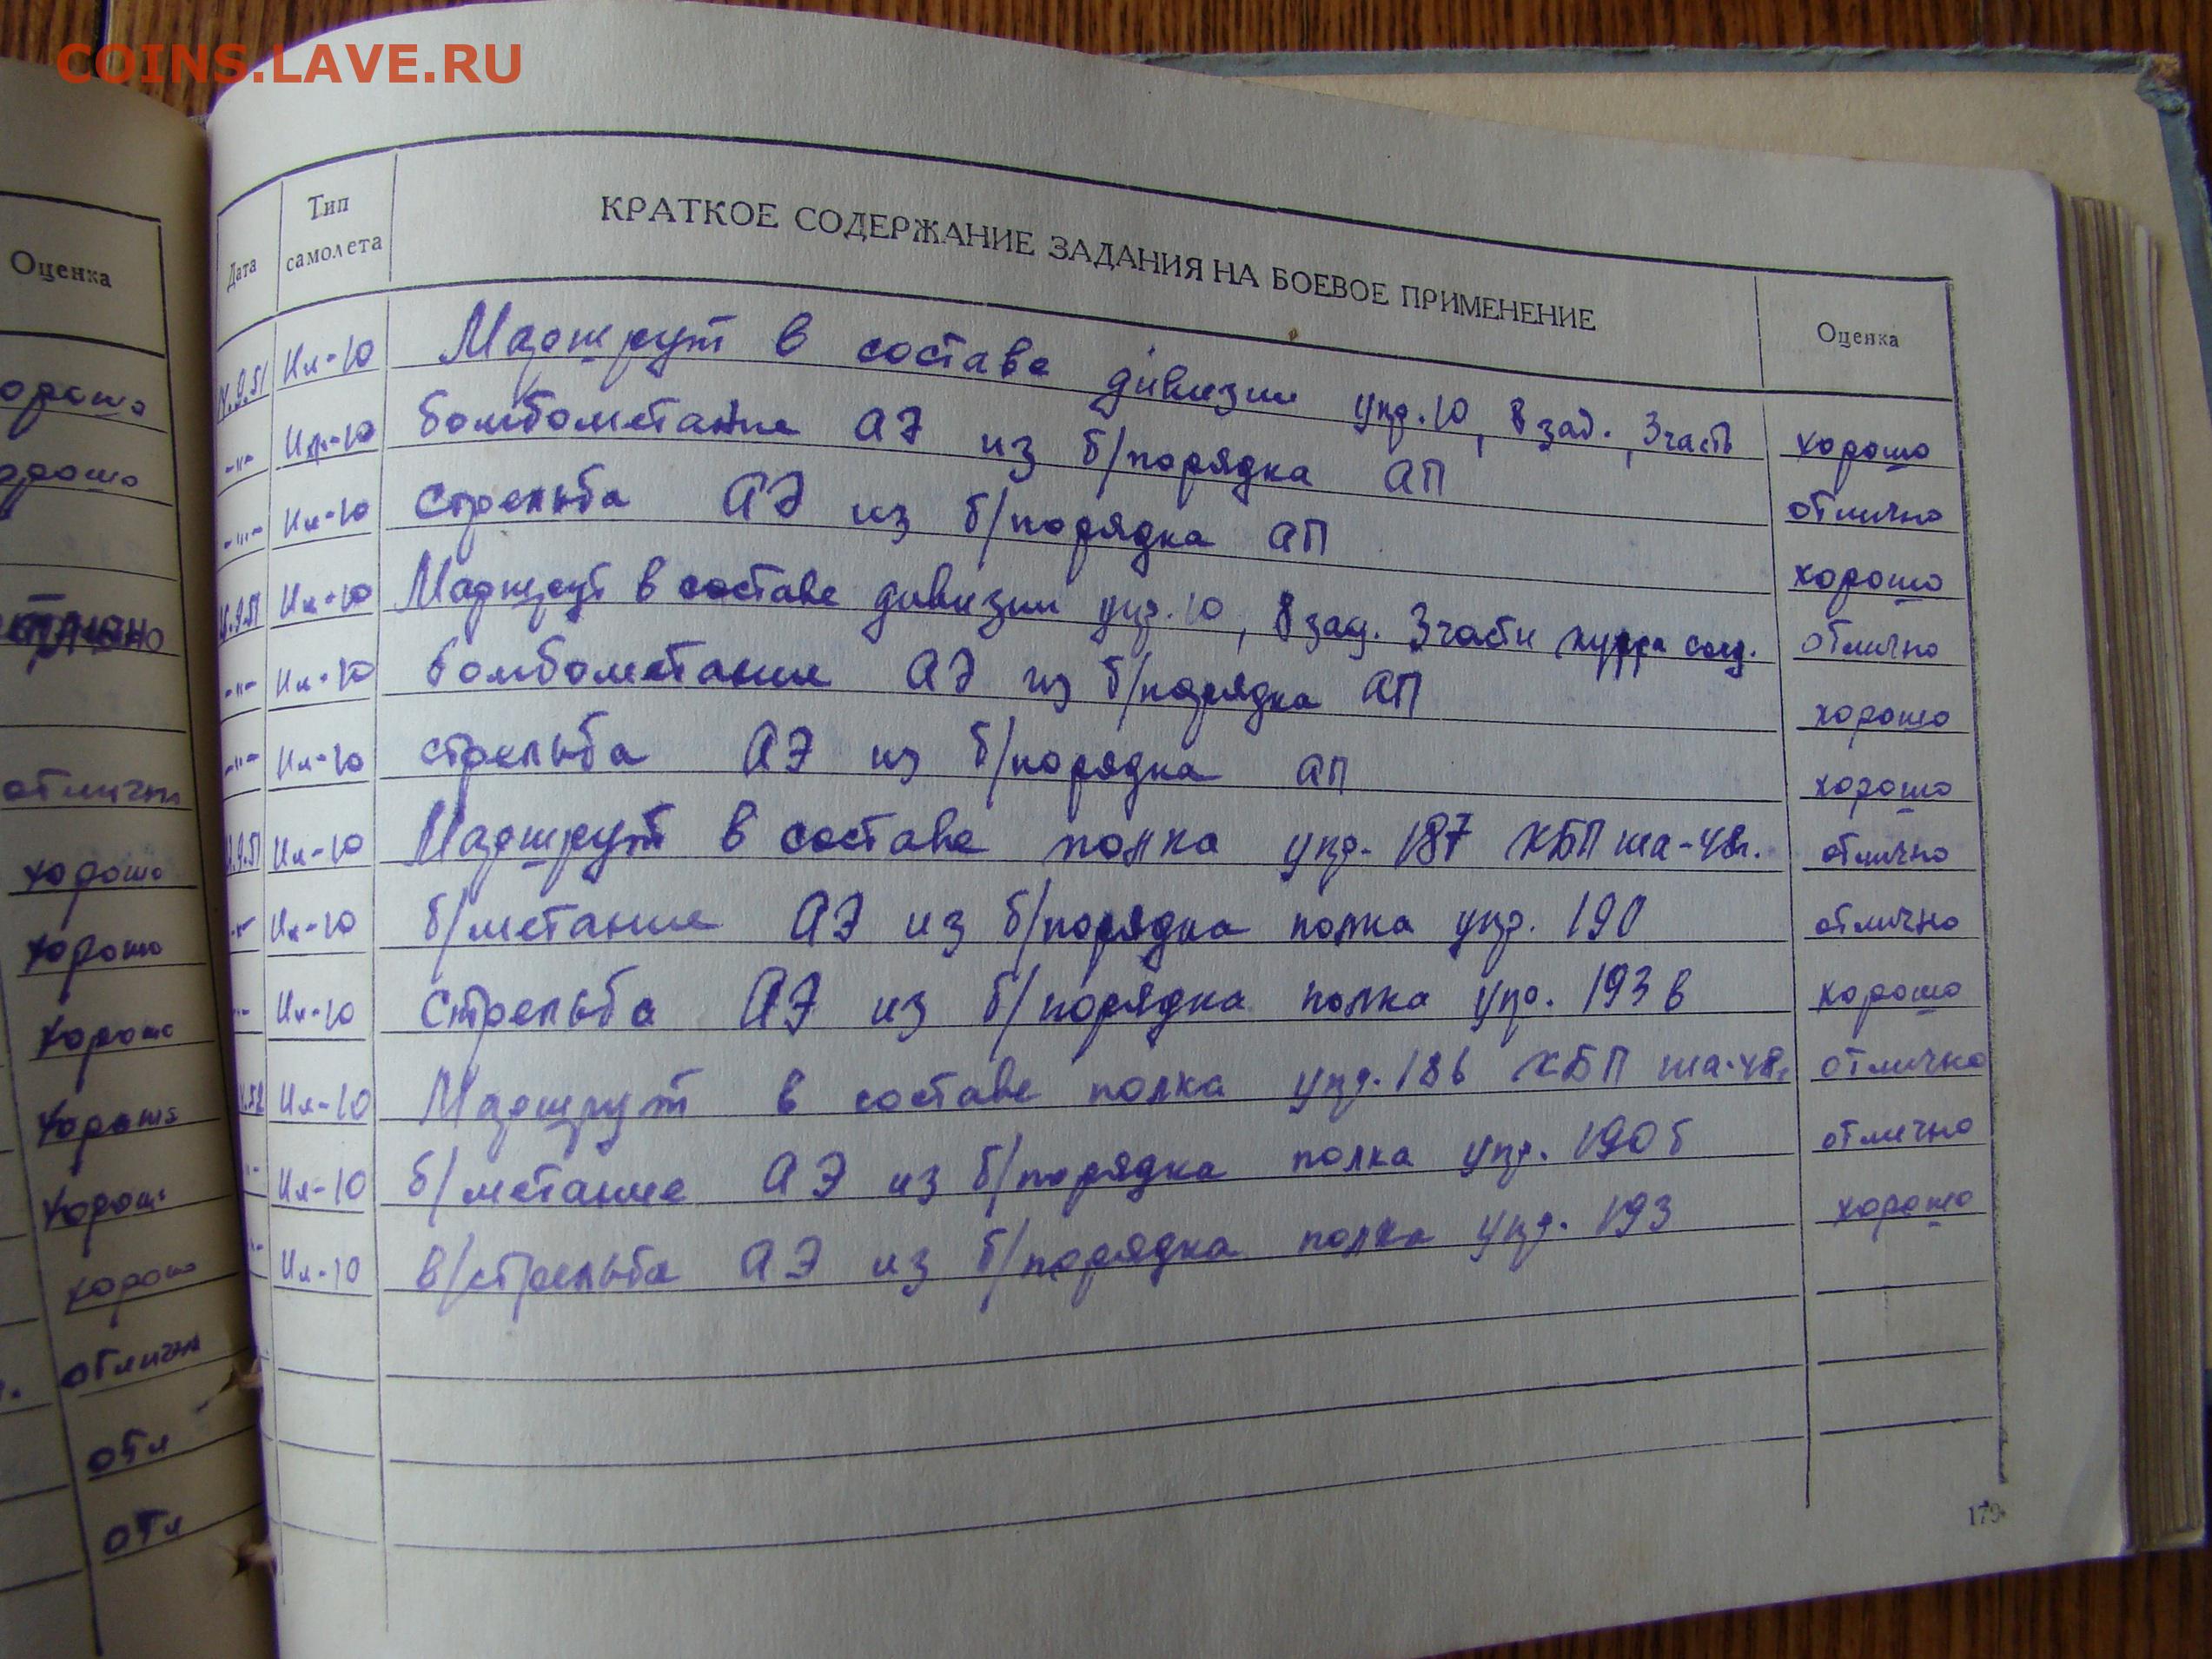 COINS.LAVE.RU
Оценка
хорошо
хорошо
отлично
отлично
хорошо
хорошо
хорошо
хорошо
хорошо
хорошо
отлично
отл
отл
Дата Тип самолета КРАТКОЕ СОДЕРЖАНИЕ ЗАДАНИЯ НА БОЕВОЕ ПРИМЕНЕНИЕ Оценка
9.51 Ил-10 Маршрут в составе дивизии упр. 10, 8 зад., 3 часть хорошо
-"- Ил-10 бомбометание АЭ из б/порядка АП отлично
-"- Ил-10 Стрельба АЭ из б/порядка АП хорошо
9.51 Ил-10 Маршрут в составе дивизии упр. 10, 8 зад. 3 части отлично
-"- Ил-10 бомбометание АЭ из б/порядка АП хорошо
-"- Ил-10 стрельба АЭ из б/порядка АП хорошо
9.51 Ил-10 Маршрут в составе полка упр. 187 КБП ша-48г. отлично
-"- Ил-10 б/метание АЭ из б/порядка полка упр. 190 отлично
-"- Ил-10 Стрельба АЭ из б/порядка полка упр. 193 в хорошо
52 Ил-10 Маршрут в составе полка упр. КБП ша-48г отлично
-"- Ил-10 б/метание АЭ из б/порядка полка упр. 190 б отлично
-"- Ил-10 в/стрельба АЭ из б/порядка полка упр. 193 хорошо
179